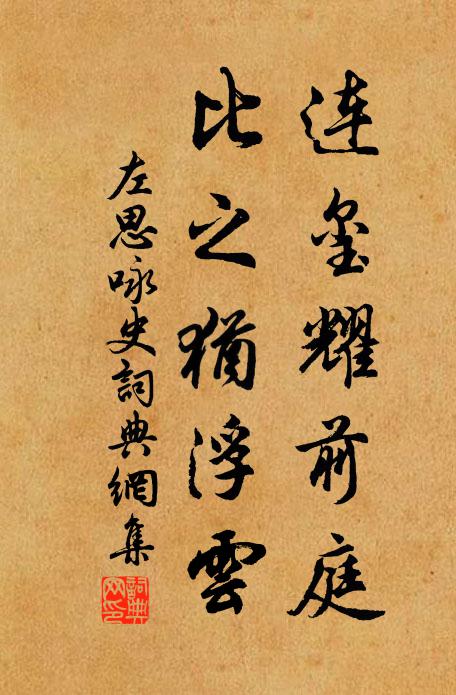 連璽耀前庭
比之猶浮雲
左思咏史詞典網集
詞典
网印